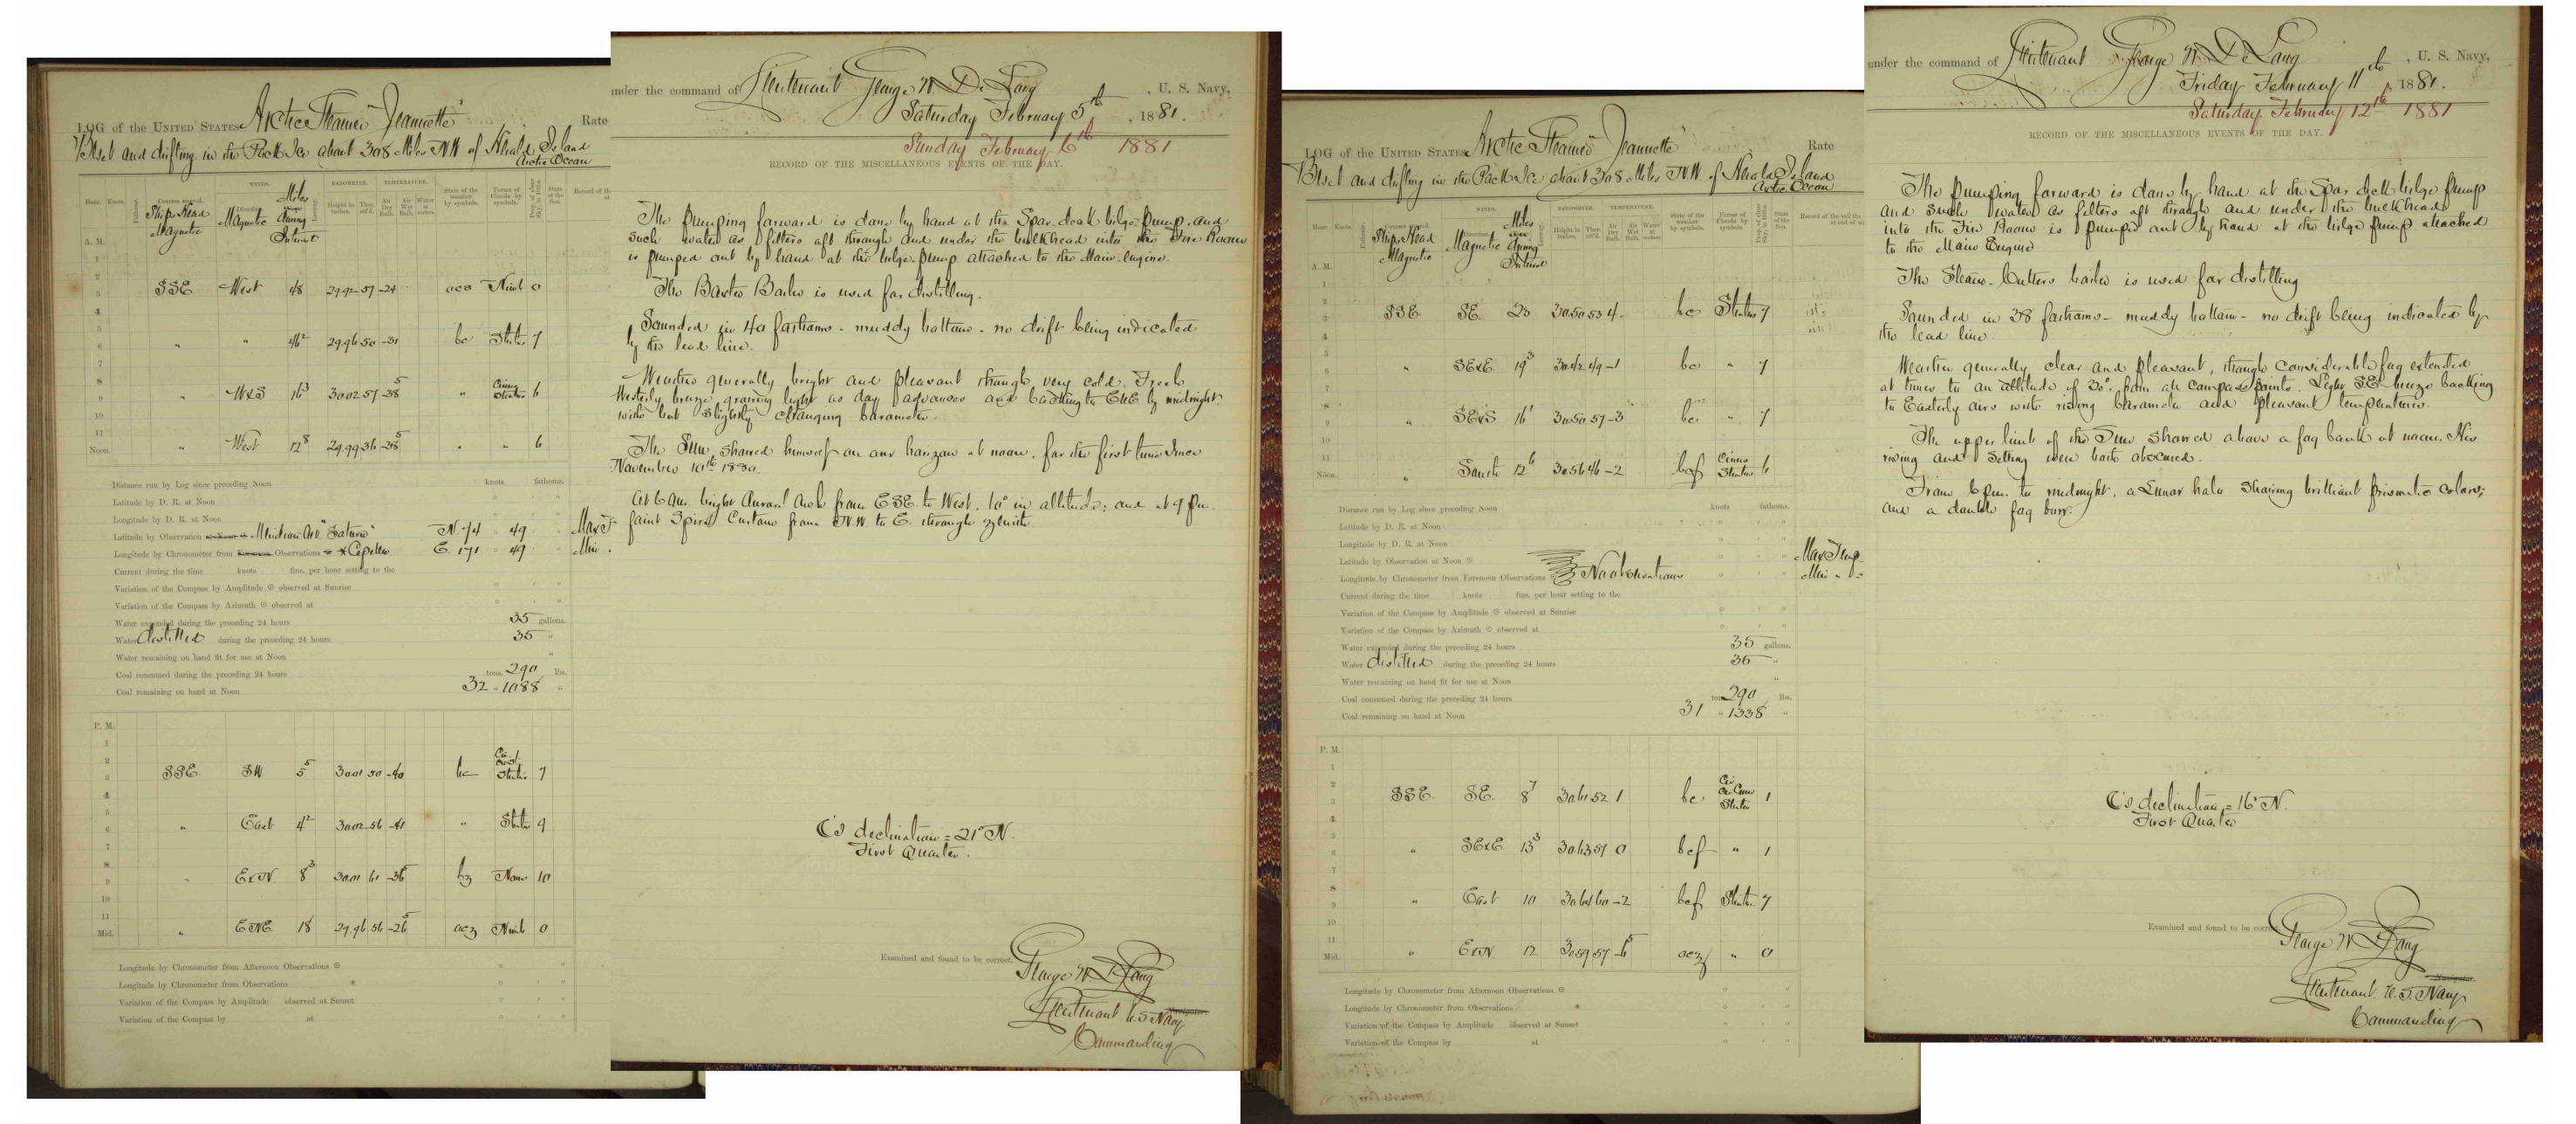 LOG of the UNITED STATES Arctic Steamer "Jeannette" Rate
Beset and drifting in the Pack Ice about 308 Miles N.W. of Herald Island
Arctic Ocean
WINDS. BAROMETER. TEMPERATURE.
Hour. Knots. Ship's Head Magnetic Magnetic Miles during Interval Height in inches. Ther. att'd. Air Dry Bulb. Air Wet Bulb. Water at surface. State of the weather by symbols. Forms of Clouds by symbols.
A. M.
1
2
3 SSE West 48 29.92 57 -24 ocs Nimb 0
4
5
6 " " 46² 29.96 50 -31 bc Stratus 7
7
8
9 " WxS 16³ 30.02 57 -38⁵ " Cirrus Stratus 6
10
11
Noon. " West 12⁸ 29.99 36 -38⁵ " " 6
Distance run by Log since preceding Noon knots fathoms.
Latitude by D. R. at Noon
Longitude by D. R. at Noon
Latitude by Observation at Noon Meridian Alt. "Saturn" N. 74 49
Longitude by Chronometer from Forenoon Observations * Capella E. 171 49
Current during the time knots fms. per hour setting to the
Variation of the Compass by Amplitude ⊙ observed at Sunrise
Variation of the Compass by Azimuth ⊙ observed at
Water expended during the preceding 24 hours 35 gallons.
Water distilled during the preceding 24 hours 35 "
Water remaining on hand fit for use at Noon "
Coal consumed during the preceding 24 hours tons, 290 lbs.
Coal remaining on hand at Noon 32 " 1088 "
P. M.
1
2
3 SSE. SW 5⁵ 30.01 50 -40 bc Stratus 7
4
5
6 " East 4² 30.02 56 -41 " Stratus 9
7
8
9 " ExN. 8³ 30.01 61 -36 bz None 10
10
11
Mid. " ENE. 18 29.96 56 -26⁵ ocz Nimb 0
Longitude by Chronometer from Afternoon Observations ⊙
Longitude by Chronometer from Observations *
Variation of the Compass by Amplitude observed at Sunset
Variation of the Compass by at
under the command of Lieutenant George W. De Long, U. S. Navy,
Saturday February 5th, 1881.
Sunday February 6th 1881
RECORD OF THE MISCELLANEOUS EVENTS OF THE DAY.
The pumping forward is done by hand at the Spar-deck bilge-pump, and
such water as filters aft through and under the bulkhead into the Fire Room
is pumped out by hand at the bilge-pump attached to the Main-engine.
The Baxter Boiler is used for distilling.
Sounded in 40 fathoms - muddy bottom - no drift being indicated
by the lead line.
Weather generally bright and pleasant though very cold. Fresh
Westerly breeze growing light as day advances and backing to ENE by midnight
with but slightly changing barometer.
The Sun showed himself on our horizon at noon, for the first time since
November 10th 1880.
At 6 am. bright Auroral Arch from ESE to West, 10° in altitude; and at 9 pm.
faint Spiral Curtain from N.W. to E. through zenith.
☾'s declination = 21° N.
First Quarter.
Examined and found to be correct.
George W. De Long
Lieutenant U.S. Navy
Navigator.
Commanding
LOG of the UNITED STATES Arctic Steamer "Jeannette" Rate
Beset and drifting in the Pack Ice about 308 Miles N.W. of Herald Island
Arctic Ocean
WINDS. BAROMETER. TEMPERATURE.
Hour. Knots. Ship's Head Magnetic Magnetic Miles during Interval Height in inches. Ther. att'd. Air Dry Bulb. Air Wet Bulb. Water at surface. State of the weather by symbols. Forms of Clouds by symbols.
A. M.
1
2
3 SSE SE. 23 30.50 53 4- bc Stratus 7
4
5
6 " SExE 19³ 30.42 49 -1 bc " 7
7
8
9 " SExS 16¹ 30.50 57 -3 bc " 7
10
11
Noon. " South 12⁶ 30.56 46 -2 bcf Cirrus Stratus 6
Distance run by Log since preceding Noon knots fathoms.
Latitude by D. R. at Noon
Longitude by D. R. at Noon
Latitude by Observation at Noon ⊙
Longitude by Chronometer from Forenoon Observations ⊙ No observations
Max Temp.
Min " "
Current during the time knots fms. per hour setting to the
Variation of the Compass by Amplitude ⊙ observed at Sunrise
Variation of the Compass by Azimuth ⊙ observed at
Water expended during the preceding 24 hours 35 gallons.
Water distilled during the preceding 24 hours 36 "
Water remaining on hand fit for use at Noon "
Coal consumed during the preceding 24 hours tons, 290 lbs.
Coal remaining on hand at Noon 31 " 1338 "
P. M.
1
2
3 SSE. SE. 8⁷ 30.61 52 1 bc Stratus 1
4
5
6 " SExE 13³ 30.63 51 0 bcf " 1
7
8
9 " East 10 30.61 60 -2 bcf Stratus 7
10
11
Mid. " ExN. 12 30.59 57 -6⁵ ocz " 0
Longitude by Chronometer from Afternoon Observations ⊙
Longitude by Chronometer from Observations *
Variation of the Compass by Amplitude observed at Sunset
Variation of the Compass by at
under the command of Lieutenant George W. De Long, U. S. Navy,
Friday February 11th, 1881.
Saturday February 12th 1881
RECORD OF THE MISCELLANEOUS EVENTS OF THE DAY.
The pumping forward is done by hand at the Spar deck bilge pump
and such water as filters aft through and under the bulkheads
into the Fire Room is pumped out by hand at the bilge pump attached
to the Main Engine
The Steam-Cutters boiler is used for distilling
Sounded in 38 fathoms - muddy bottom - no drift being indicated by
the lead line.
Weather generally clear and pleasant, though considerable fog extended
at times to an altitude of 30°. from all compass points. Light SE breeze backing
to Easterly airs with rising barometer and pleasant temperature.
The upper limb of the Sun showed above a fog bank at noon. His
rising and setting were both obscured.
From 6 pm. to midnight, a Lunar halo showing brilliant prismatic colors;
and a double fog bow.
☾'s declination = 16° N.
First Quarter
Examined and found to be correct.
George W. De Long
Navigator.
Lieutenant U.S. Navy
Commanding